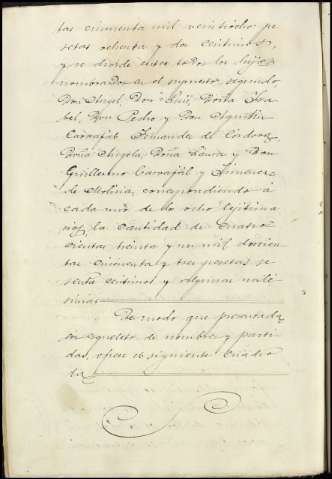 tas cincuenta mil veintiocho pe
setas ochenta y dos centimos,
y se divide entre todos los hijos
nombrados en el supuesto segundo,
Don Angel, Don Luis, Doña Isa
bel, Don Pedro y Don Agustin
Carvajal Fernandez de Córdova,
Doña Angela, Doña Laura y Don
Guillermo Carvajal y Jimenez
de Molina, correspondiendo á
cada uno de los ocho lejitima
rios, la cantidad de cuatro
cientas treinta y un mil doscien
tas cincuenta y tres pesetas se
senta centimos y algunas mile
simas
De modo que presentada
en esqueleto de nombres y parti
das, ofrece el siguiente cuadro